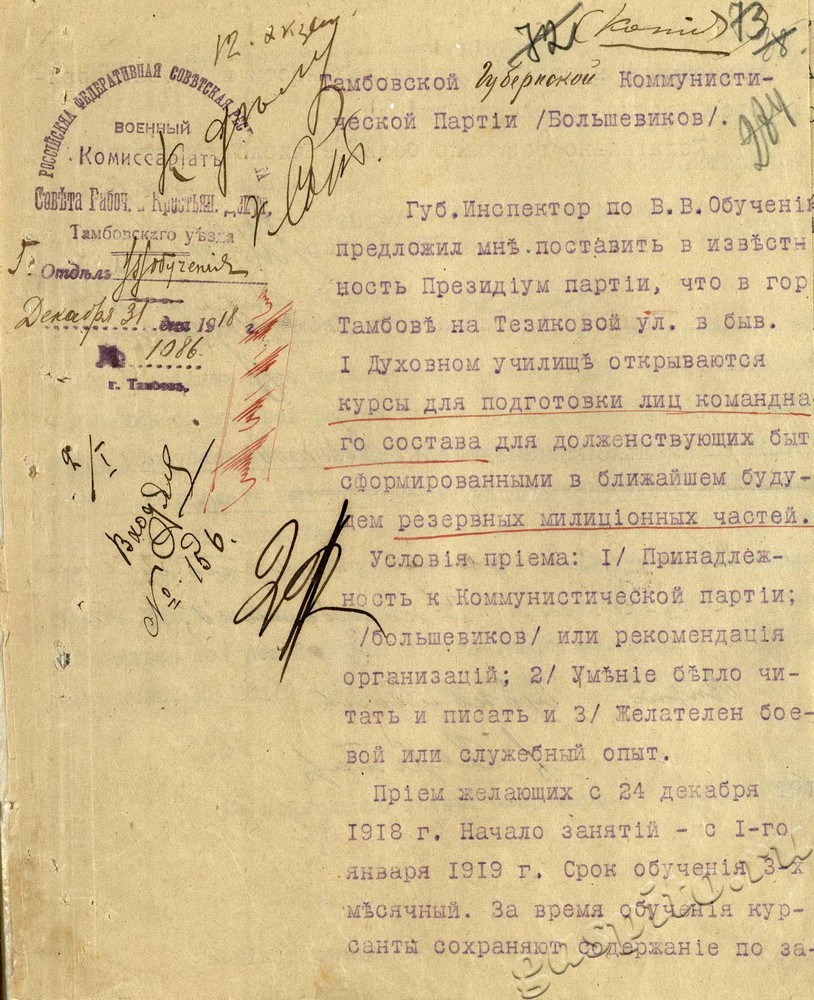 12. экз.
72 (копия) 73
284
РОССІЙСКАЯ ФЕДЕРАТИВНАЯ СОВѢТСКАЯ РЕС
ВОЕННЫЙ
Комиссаріатъ
Совѣта Рабоч. и Крестьян. Д
Тамбовскаго уѣзда
Отдѣлъ Обученія
Декабря 31 дня 1918 г.
№ 1086.
г. Тамбовъ.
К Делу
2/I
Входящ
№ 156.
Тамбовской Губернской Коммунисти-
ческой Партіи /Большевиков/.
Губ.Инспектор по В.В.Обученію
предложил мнѣ поставить в извѣстн
ность Президіум партіи, что в гор
Тамбовѣ на Тезиковой ул. в быв.
I Духовном училищѣ открываются
курсы для подготовки лиц командна-
го состава для долженствующих быт
сформированными в ближайшем буду-
щем резервных милиціонных частей.
Условія пріема: I/ Принадлеж-
ность к Коммунистической партіи;
/большевиков/ или рекомендація
организацій; 2/ Умѣніе бѣгло чи-
тать и писать и 3/ Желателен бое-
вой или служебный опыт.
Пріем желающих с 24 декабря
1918 г. Начало занятій - с I-го
января 1919 г. Срок обученія 3-х
мѣсячный. За время обученія кур-
санты сохраняют содержаніе по за-